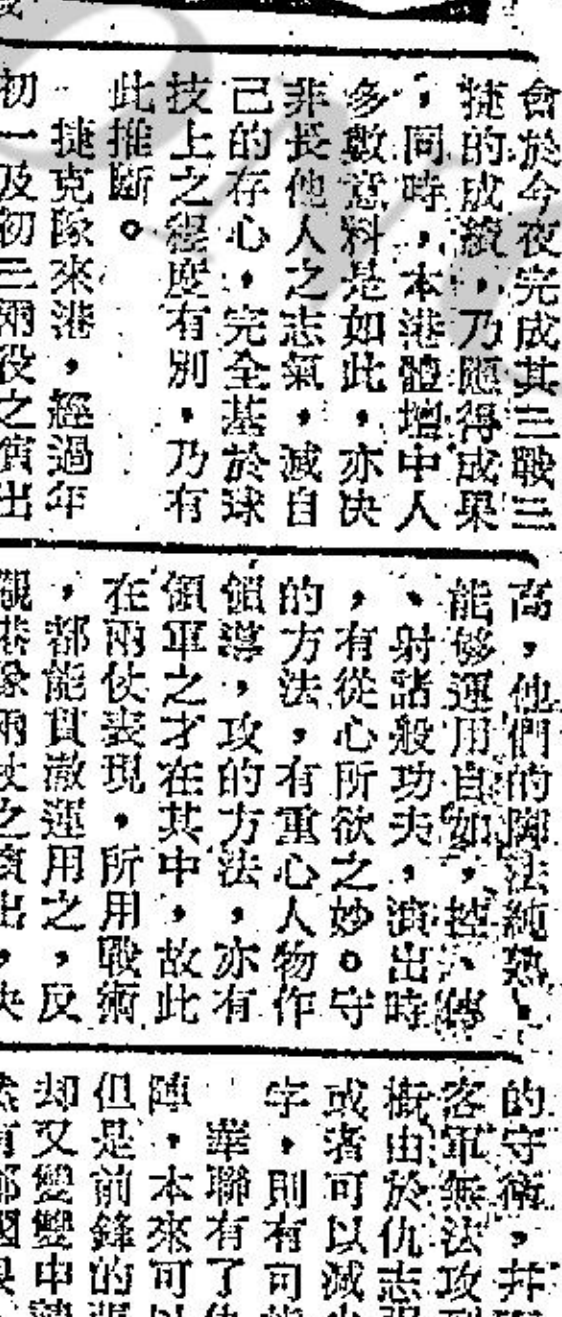 會於今夜完成其三戰三
捷的成績，乃應得成果
，同時，本港體壇中人
多數意料是如此，亦决
非長他人之志氣，滅自
己的存心，完全基於球
技上之程度有別，乃有
此推斷。
捷克隊來港，經過年
初一及初三兩役之演出
高，他們的脚法純熟，
能够運用自如，控、傳
、射諸般功夫，演出時
，有從心所欲之妙。守
的方法，有重心人物作
領導，攻的方法，亦有
領軍之才在其中，故此
在兩仗表現，所用戰術
，都能貫澈運用之，反
觀港隊兩仗之演出，决
的守衛，并
客軍無法攻
概由於仇志
或者可以減少
字，則有可能
華聯有了仇
陣，本來可以
但是前鋒的
却又雙雙申